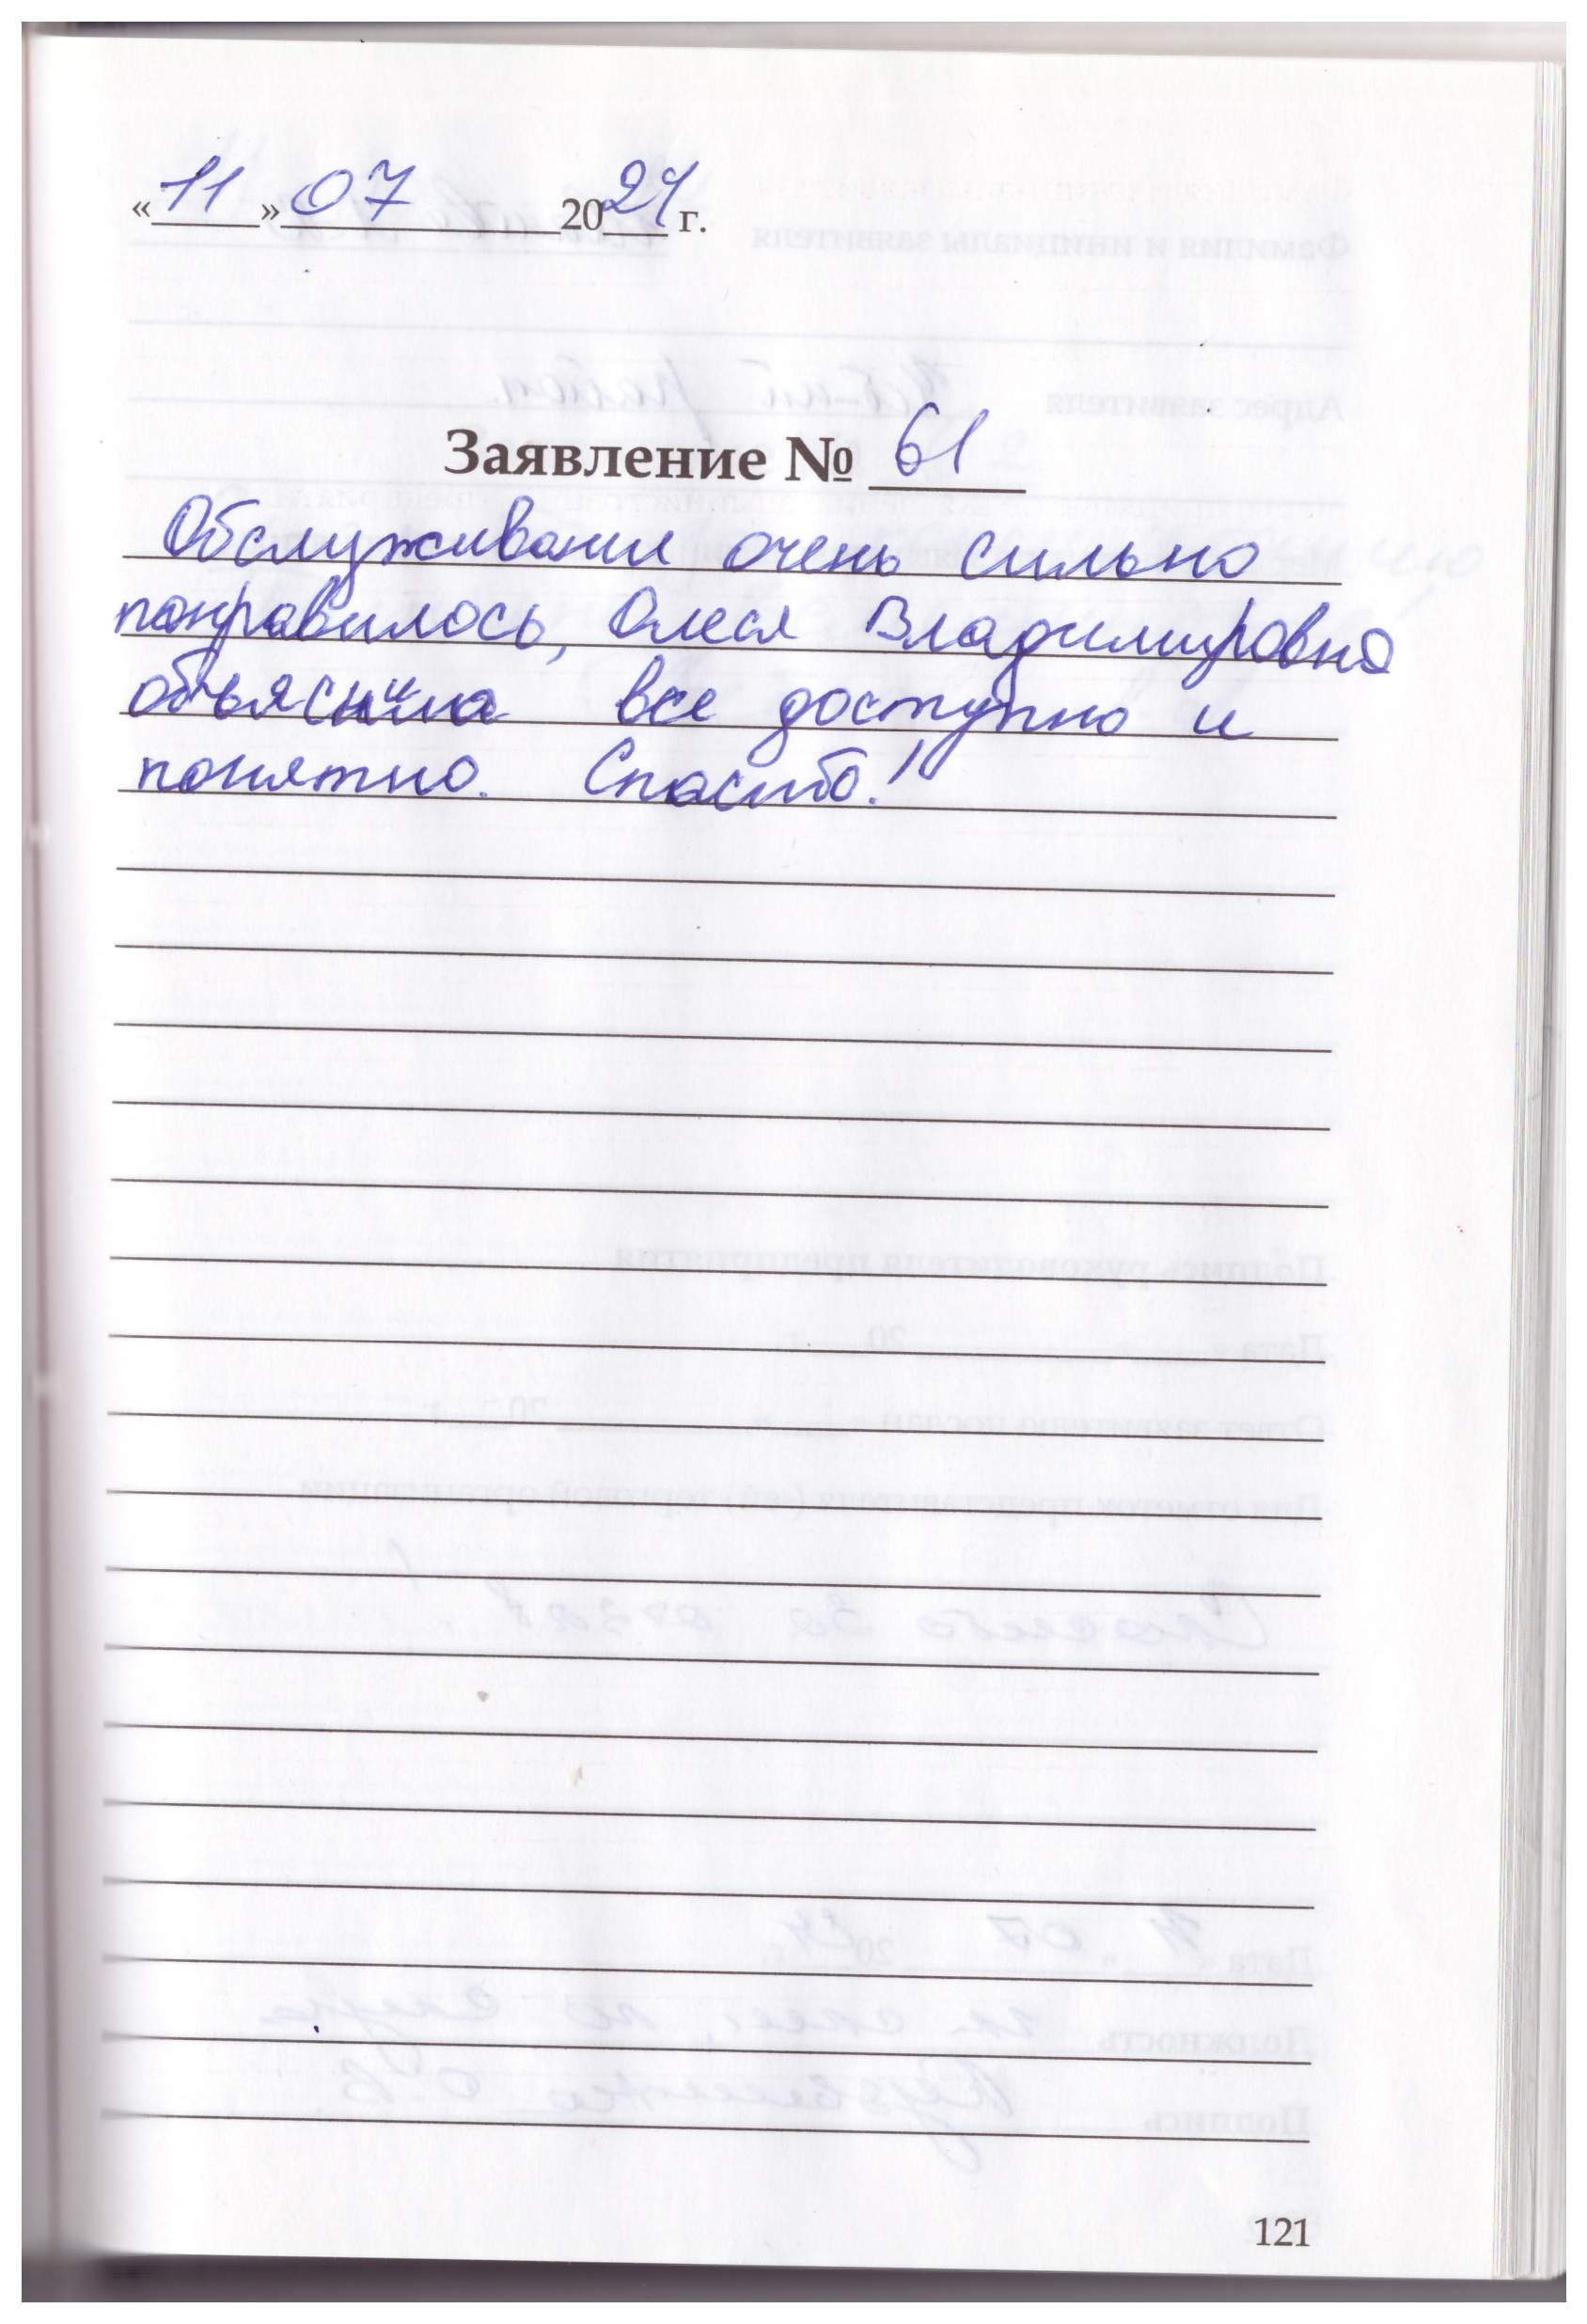 «11» 07 2024 г.
Заявление № 61
Обслуживание очень сильно
понравилось, Олеся Владимировна
объяснила все доступно и
понятно. Спасибо!
121